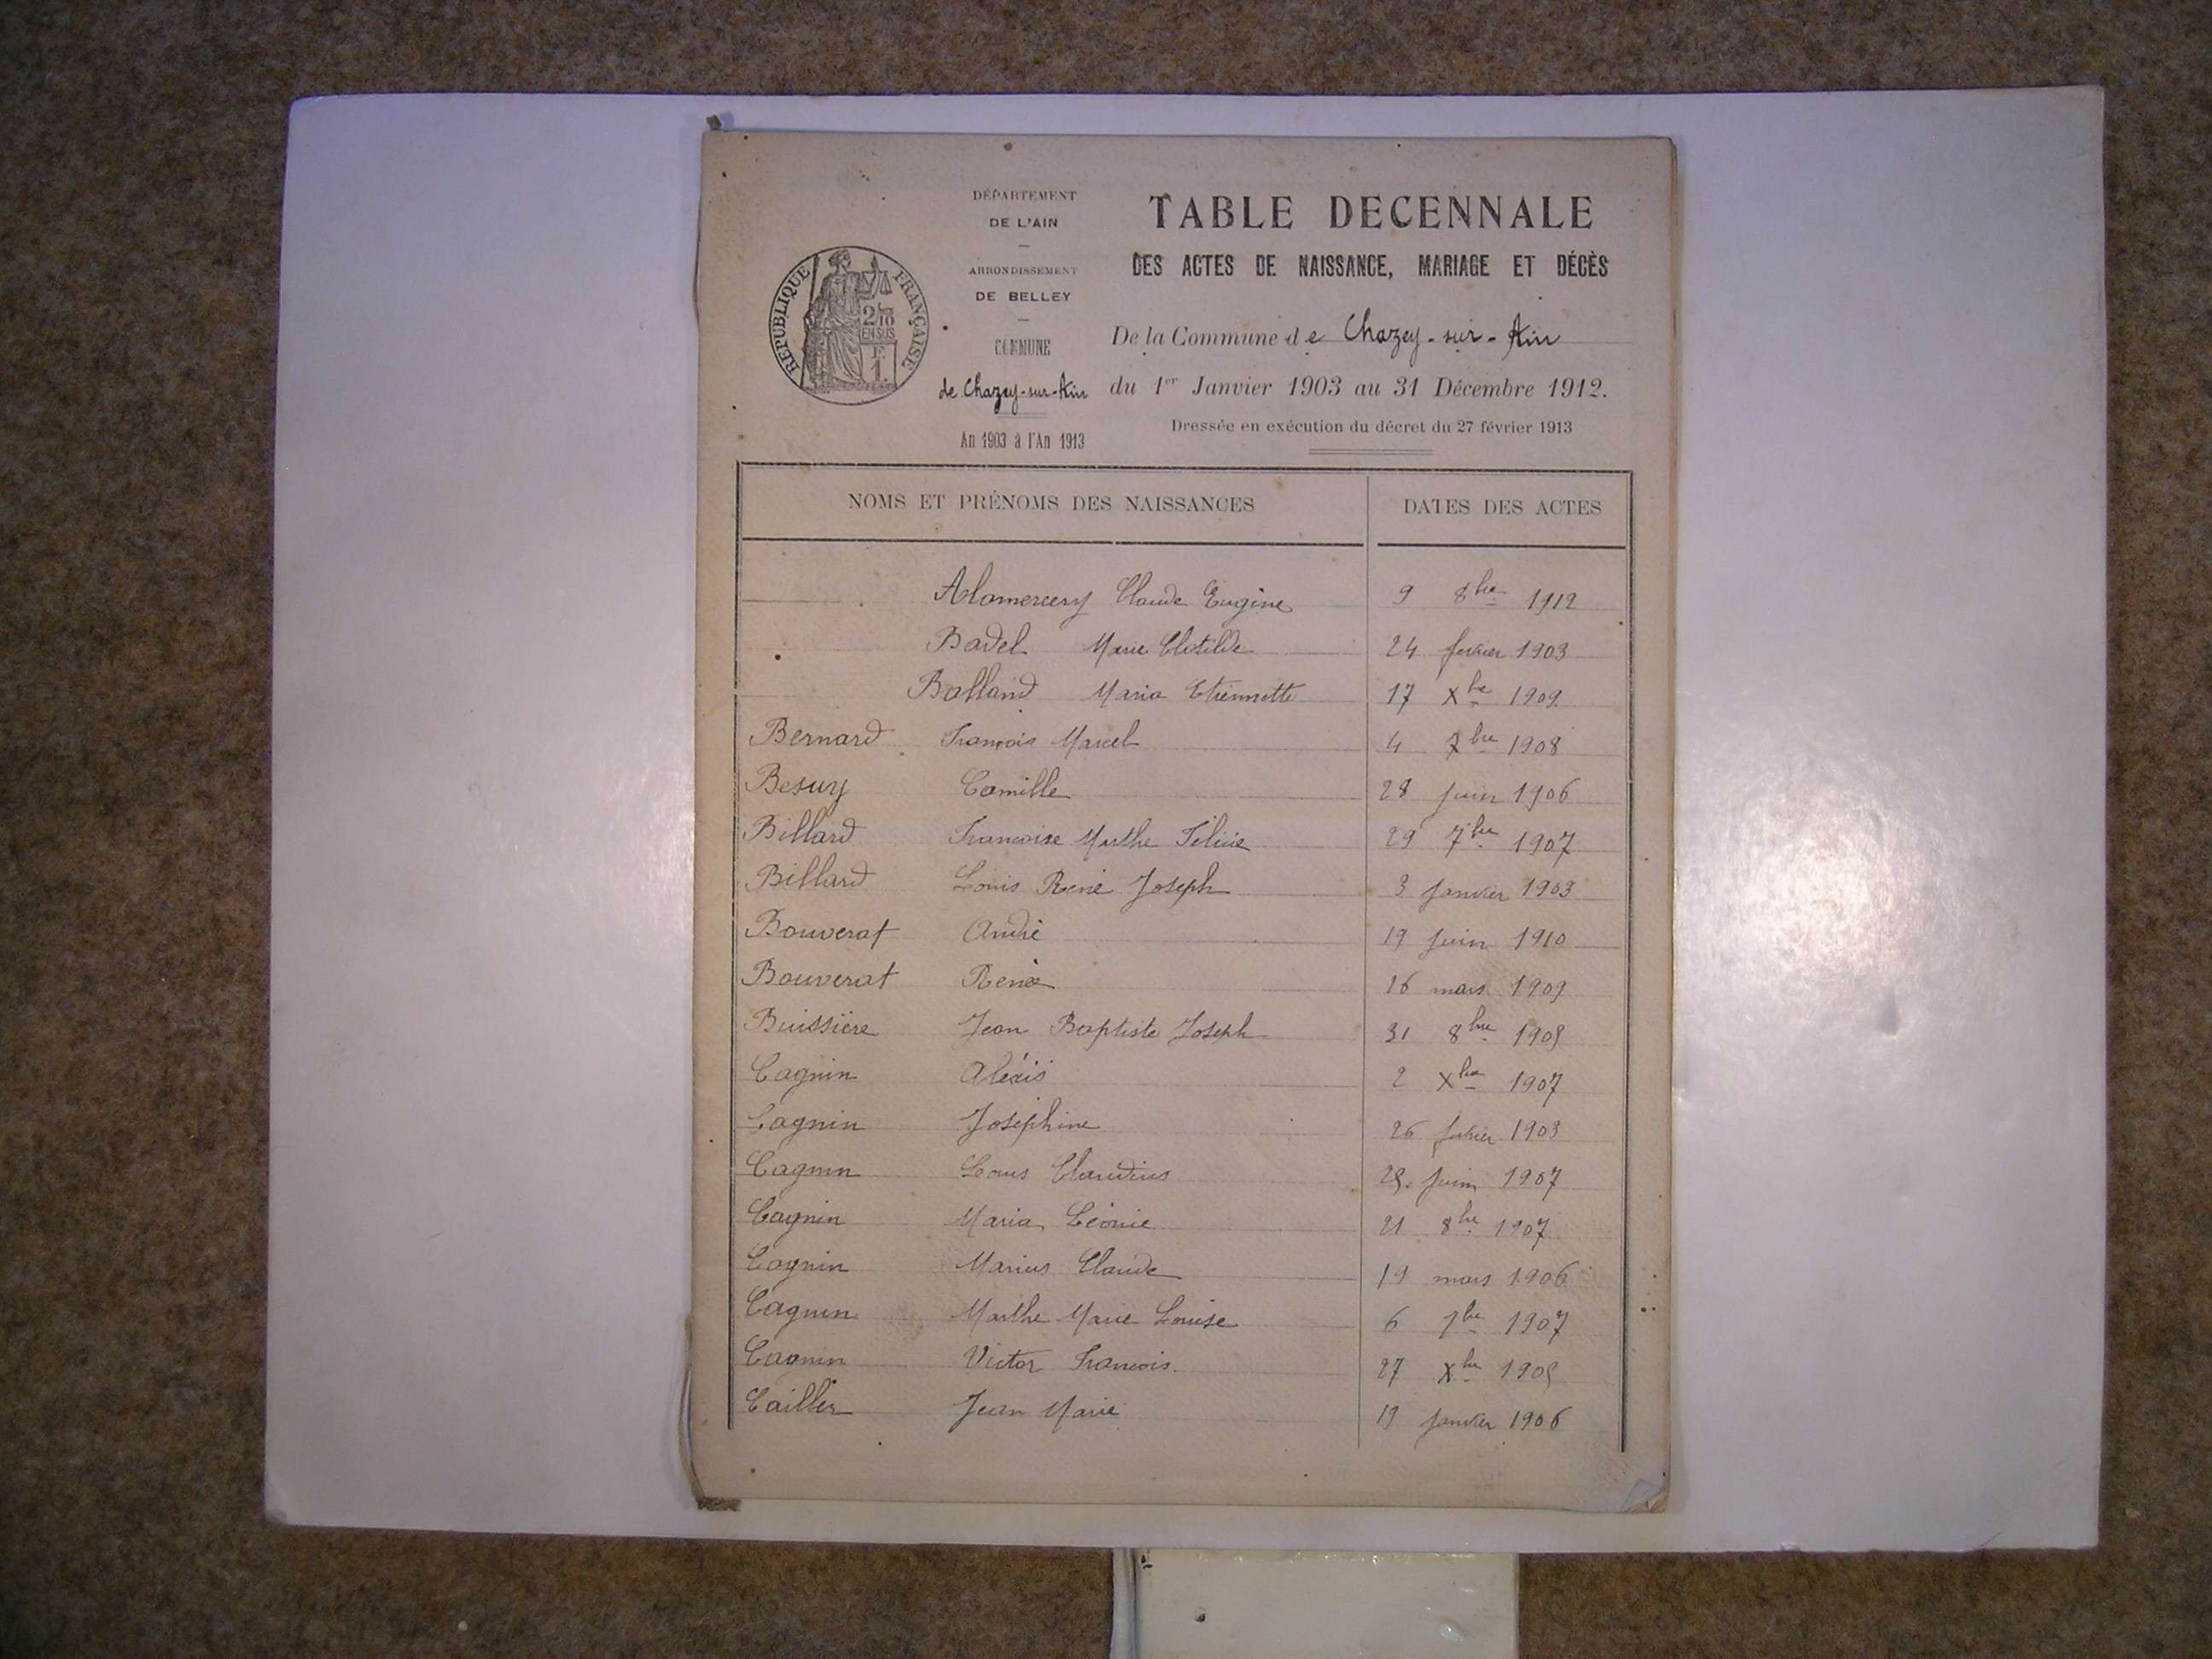 DÉPARTEMENT
DE L'AIN
ARRONDISSEMENT
DE BELLEY
COMMUNE
de Chazey-sur-Ain
An 1903 à l'An 1913
RÉPUBLIQUE FRANÇAISE
2/10
EN SUS
F.
1.
TABLE DECENNALE
DES ACTES DE NAISSANCE, MARIAGE ET DÉCÈS
De la Commune de Chazey-sur-Ain
du 1er Janvier 1903 au 31 Décembre 1912.
Dressée en exécution du décret du 27 février 1913
NOMS ET PRÉNOMS DES NAISSANCES DATES DES ACTES
Alomercery Claude Eugène 9 8bre 1912
Badel Marie Clotilde 24 fevrier 1903
Balland Maria Etiennette 17 Xbre 1909
Bernard François Marcel 4 7bre 1908
Besuy Camille 28 juin 1906
Billard Francoise Marthe Félicie 29 7bre 1907
Billard Louis René Joseph 3 janvier 1903
Bouverat André 19 juin 1910
Bouverat René 16 mars 1909
Buissière Jean Baptiste Joseph 31 8bre
Cagnin Aléxis 2 Xbre 1907
Cagnin Joséphine 26 fevrier 1903
Cagnin Louis Claudius juin 1907
Cagnin Maria Léonie 21 8bre 1907
Cagnin Marius Claude 19 mars 1906
Cagnin Marthe Marie Louise 6 7bre 1907
Cagnin Victor Francois. 27 Xbre
Cailler Jean Marie 19 janvier 1906